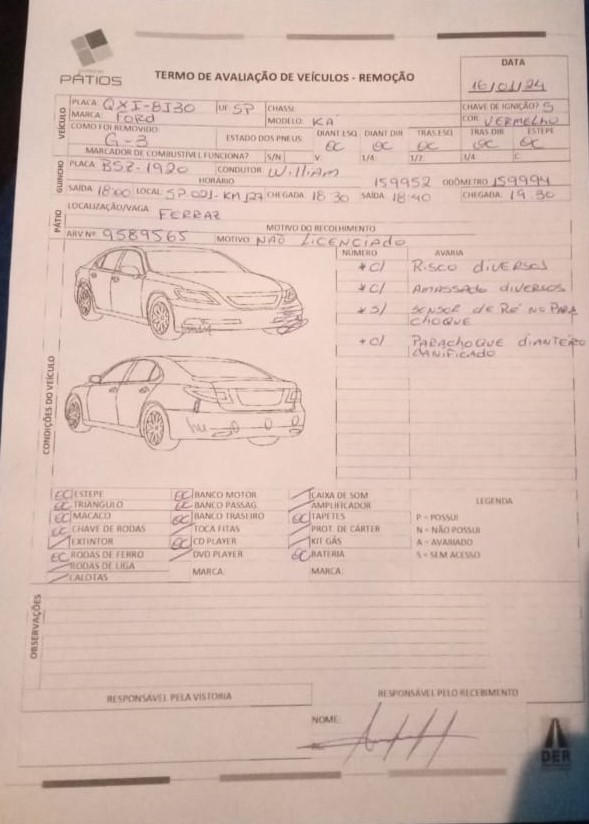 PÁTIOS
TERMO DE AVALIAÇÃO DE VEÍCULOS - REMOÇÃO
DATA
16/01/24
VEÍCULO
PLACA: QXI-8J30 UF: SP CHASSI: CHAVE DE IGNIÇÃO? S
MARCA: Ford MODELO: KA COR: VERMELHO
COMO FOI REMOVIDO: G-3 ESTADO DOS PNEUS: DIANT ESQ DIANT DIR TRAS ESQ TRAS DIR ESTEPE
MARCADOR DE COMBUSTÍVEL FUNCIONA? S/N V. 1/4: 1/2: 3/4 C:
GUINCHO
PLACA: BSZ-1920 CONDUTOR: William
HORÁRIO 159952 ODÔMETRO 159994
SAÍDA: 18:00 LOCAL: SP.021-KM127 CHEGADA: 18 30 SAÍDA: 18:40 CHEGADA: 19.30
PÁTIO
LOCALIZAÇÃO/VAGA: FERRAZ
MOTIVO DO RECOLHIMENTO
ARV Nº: 9589565 MOTIVO: NÃO LICENCIADO
NÚMERO AVARIA
* C/ RISCO DIVERSOS
* C/ AMASSADO DIVERSOS
* S/ SENSOR DE RÉ NO PARA
CHOQUE
* C/ PARACHOQUE DIANTEIRO
DANIFICADO
CONDIÇÕES DO VEÍCULO
ESTEPE BANCO MOTOR CAIXA DE SOM
TRIANGULO BANCO PASSAG. AMPLIFICADOR LEGENDA
MACACO BANCO TRASEIRO TAPETES P - POSSUI
CHAVE DE RODAS TOCA FITAS PROT. DE CÁRTER N - NÃO POSSUI
EXTINTOR CD PLAYER KIT GÁS A - AVARIADO
RODAS DE FERRO DVD PLAYER BATERIA S - SEM ACESSO
RODAS DE LIGA MARCA: MARCA:
CALOTAS
OBSERVAÇÕES
RESPONSÁVEL PELA VISTORIA RESPONSÁVEL PELO RECEBIMENTO
NOME:
DER